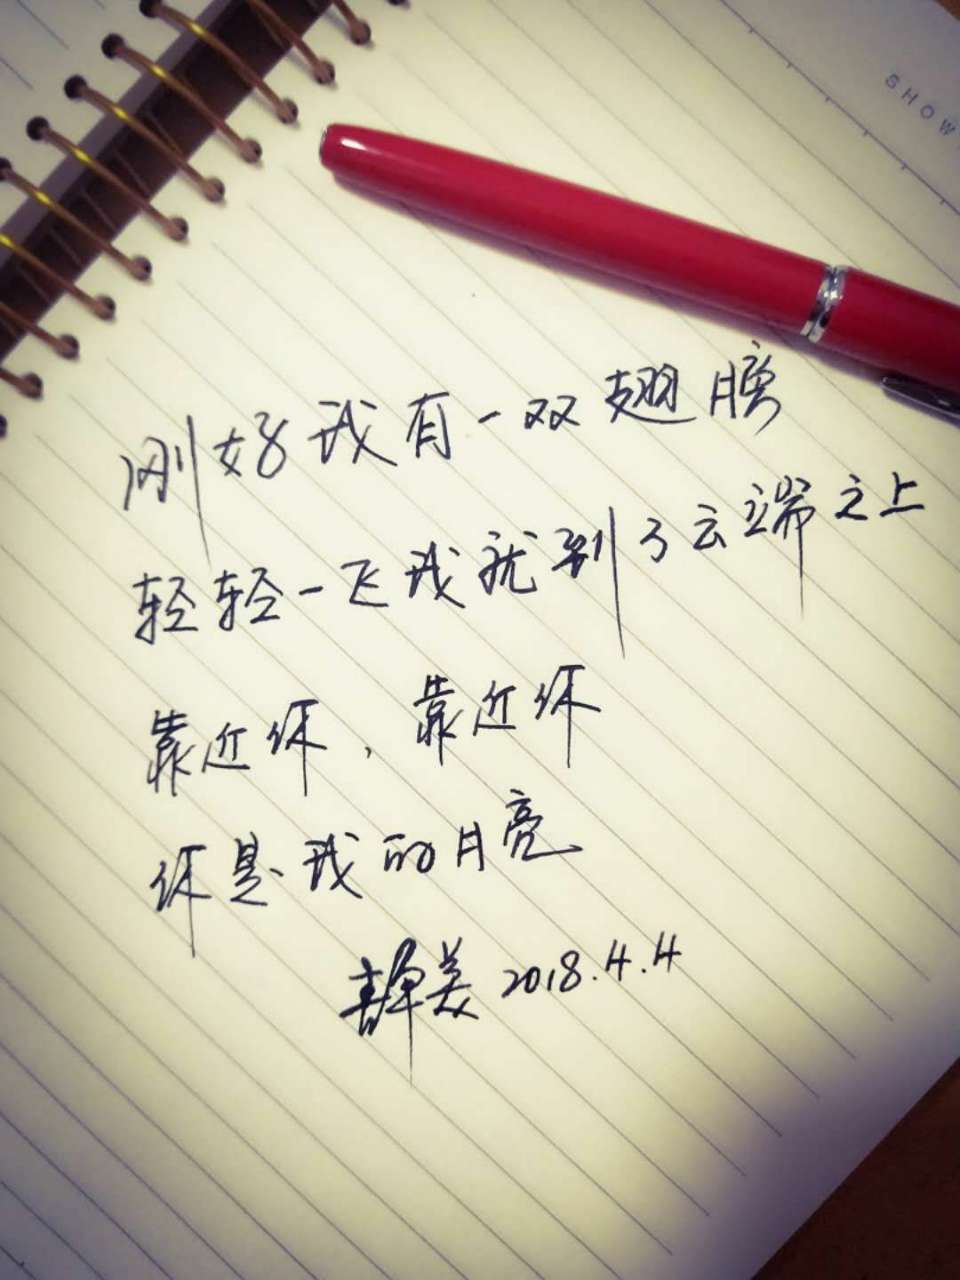 SHOW
刚好我有一双翅膀
轻轻一飞我就到了云端之上
靠近你,靠近你
你是我的月亮
静美 2018.4.4